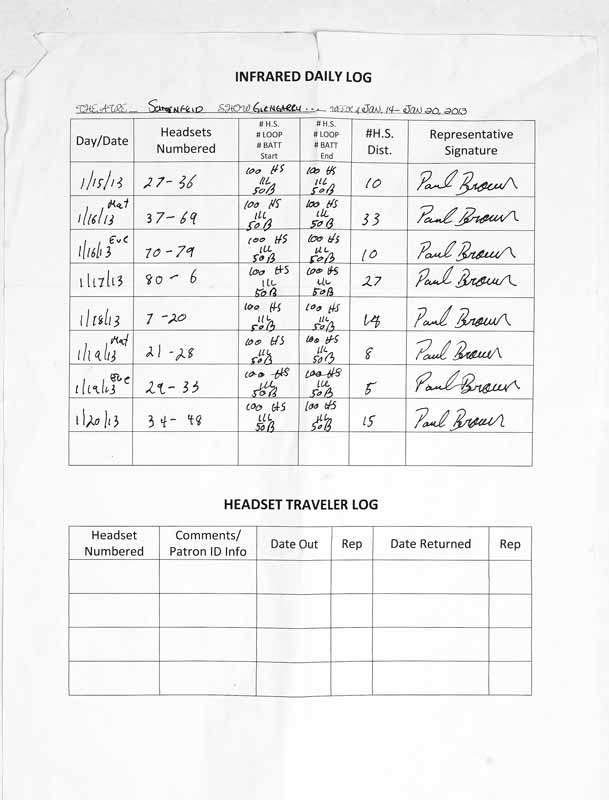 INFRARED DAILY LOG
THEATRE SCHOENFELD SHOW GLENGARRY... WEEK of JAN. 14 - JAN 20, 2013
Day/Date Headsets Numbered # H.S. # LOOP # BATT Start # H.S. # LOOP # BATT End #H.S. Dist. Representative Signature
1/15/13 27-36 100 HS 1LL 50B 100 HS 1LL 50B 10 Paul Brown
1/16/13 Mat 37-69 100 HS 1LL 50B 100 HS 1LL 50B 33 Paul Brown
1/16/13 Eve 70-79 100 HS 1LL 50B 100 HS 1LL 50B 10 Paul Brown
1/17/13 80-6 100 HS 1LL 50B 100 HS 1LL 50B 27 Paul Brown
1/18/13 7-20 100 HS 1LL 50B 100 HS 1LL 50B 14 Paul Brown
1/19/13 Mat 21-28 100 HS 1LL 50B 100 HS 1LL 50B 8 Paul Brown
1/19/13 Eve 29-33 100 HS 1LL 50B 100 HS 1LL 50B 5 Paul Brown
1/20/13 34-48 100 HS 1LL 50B 100 HS 1LL 50B 15 Paul Brown
HEADSET TRAVELER LOG
Headset Numbered Comments/ Patron ID Info Date Out Rep Date Returned Rep